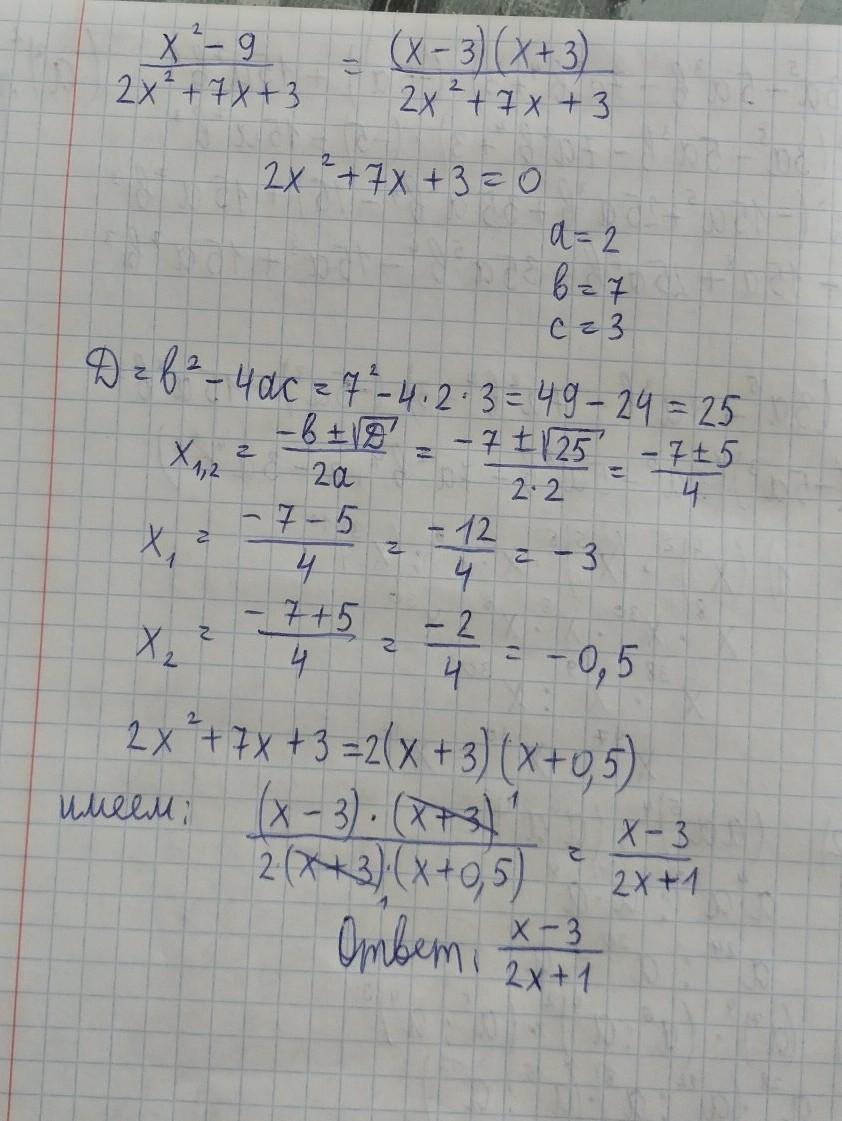 x² - 9 / 2x² + 7x + 3 = (x - 3)(x + 3) / 2x² + 7x + 3
2x² + 7x + 3 = 0
a = 2
b = 7
c = 3
D = b² - 4ac = 7² - 4·2·3 = 49 - 24 = 25
x₁,₂ = -b ± √D / 2a = -7 ± √25 / 2·2 = -7 ± 5 / 4
x₁ = -7 - 5 / 4 = -12 / 4 = -3
x₂ = -7 + 5 / 4 = -2 / 4 = -0,5
2x² + 7x + 3 = 2(x + 3)(x + 0,5)
имеем: (x - 3)·(x + 3) 1 / 2(x + 3)·(x + 0,5) 1 = x - 3 / 2x + 1
Ответ: x - 3 / 2x + 1